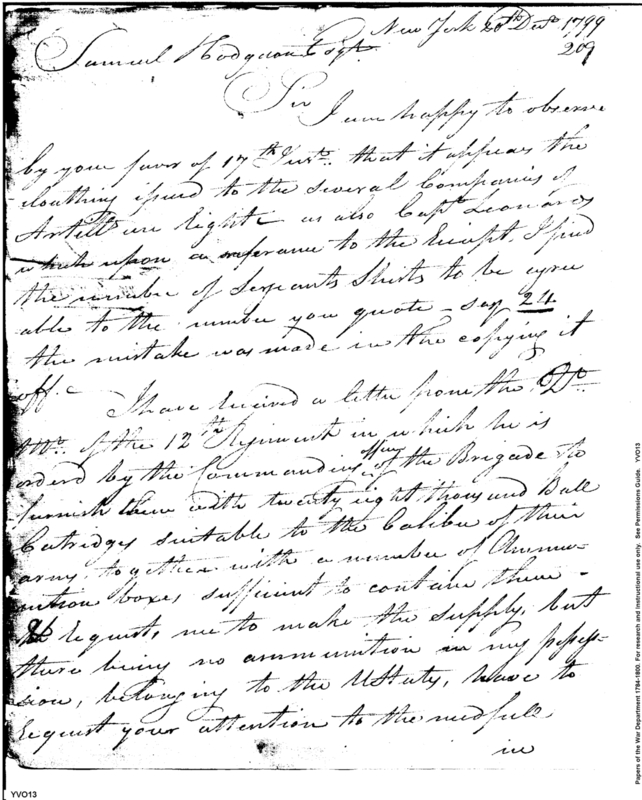 New York 20th Decr 1799
209
Samuel Hodgdon Esqr
Sir
I am happy to observe
by your favor of 17th Inst. that it appears the
cloathing issued to the several Companies of
Artill are right as also Capt Leonards
which upon a referance to the Receipt, I find
the number of Serjeants Shirts to be agree
able to the number you quote - say 24.
the mistake was made in the copying it
off.-
I have received a letter from the
of the 12th Regiment in which he is
orderd by the Commanding officer of the Brigade to
furnish them with twenty eight thousand Ball
Catridges suitable to the Calibre of their
arms, together with a number of Ammu-
nition boxes, sufficient to contain them -
Request, me to make the supply, but
there being no ammunition in my posses-
sion, belonging to the UStates, have to
request your attention to the needfull
in
YVO13
Papers of the War Department 1784-1800. For research and instructional use only. See Permissions Guide. YVO13